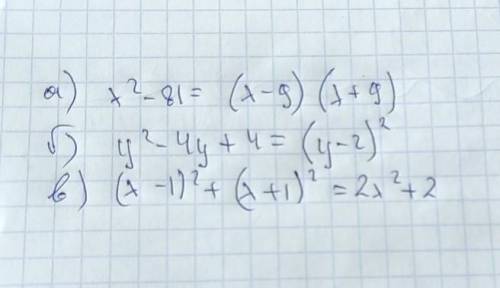 а) x² - 81 = (x - 9) (x + 9)
б) y² - 4y + 4 = (y - 2)²
в) (x - 1)² + (x + 1)² = 2x² + 2